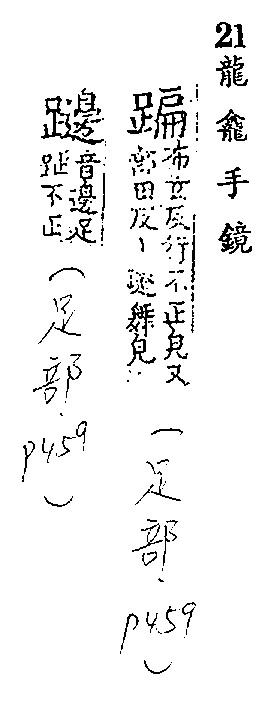 21 龍龕手鏡
蹁布玄反行不正皃又
部田反丨𨇤舞皃
(足部. p459)
𨆲音邊足
跐不正
(足部. p459)